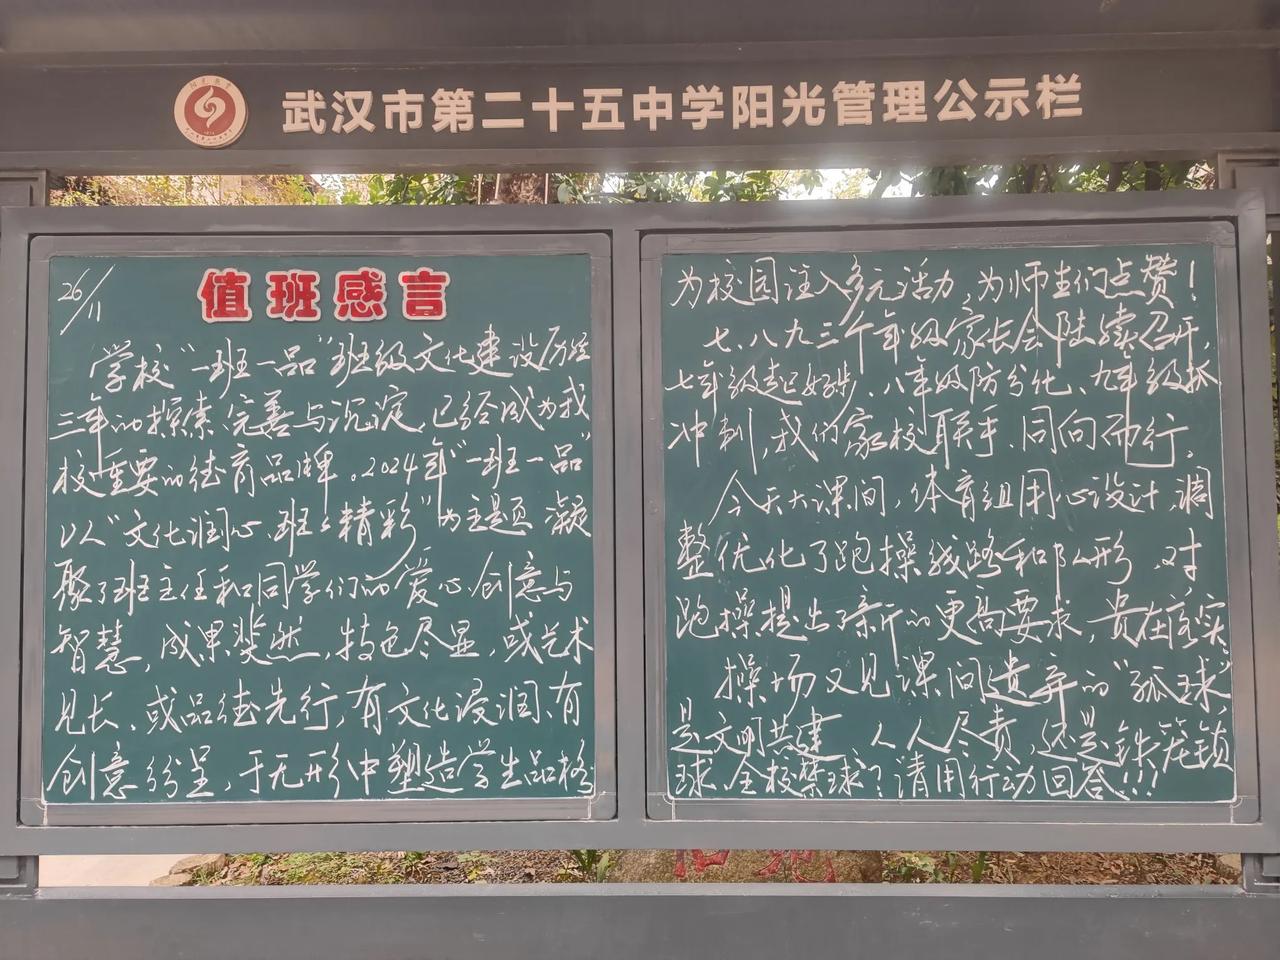 武汉市第二十五中学阳光管理公示栏
值班感言
26/11
学校“一班一品”班级文化建设历经
三年的探索、完善与沉淀，已经成为我
校重要的德育品牌。2024年“一班一品”
以“文化润心、班班精彩”为主题，凝
聚了班主任和同学们的爱心、创意与
智慧，成果斐然，特色尽显，或艺术
见长、或品德先行，有文化浸润、有
创意纷呈，于无形中塑造学生品格
为校园注入多元活力，为师生们点赞！
七、八、九三个年级家长会陆续召开，
七年级起好步、八年级防分化、九年级抓
冲刺，我们家校联手、同向而行。
今天大课间，体育组用心设计，调
整优化了跑操线路和队形，对
跑操提出了新的更高要求，贵在落实。
操场又见课间遗弃的“孤球”，
是文明共建、人人尽责，还是铁笼锁
球、全校禁球？请用行动回答！！！